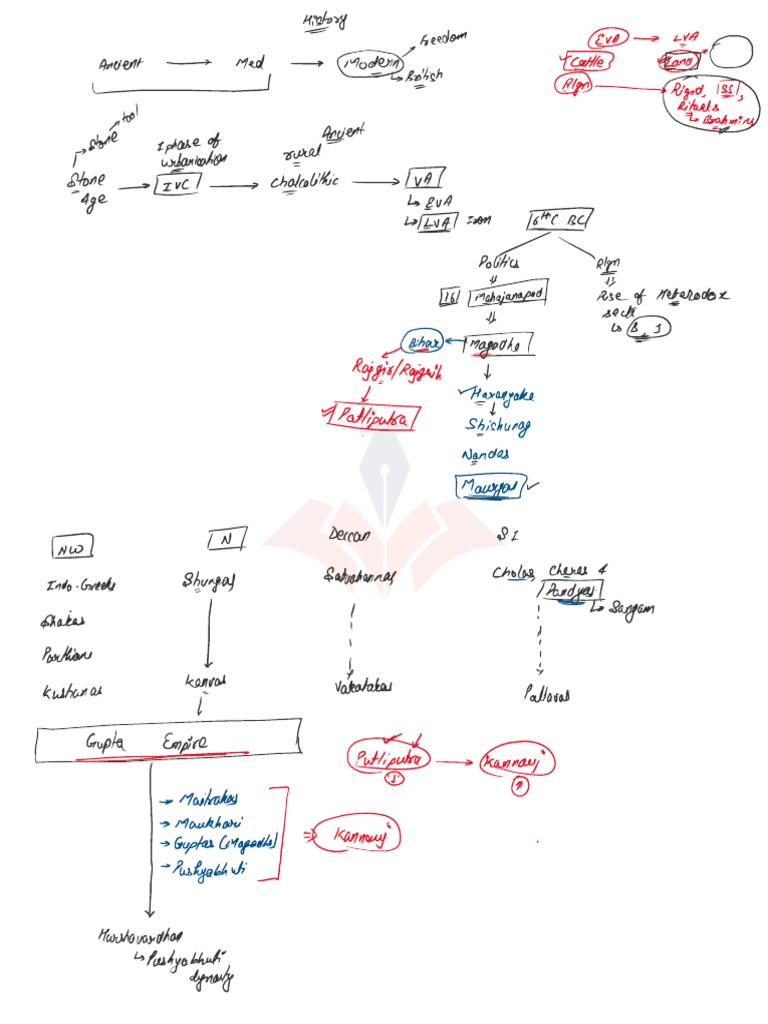 History
Ancient → Med → Modern
Freedom
British
EVA → LVA
Cattle Land
Rlgn → Rigid, SS,
Rituals
Brahmins
Ancient
Stone tool
Stone Age → IVC → Chalcolithic → VA
I phase of urbanization
rural
EVA
LVA Iron
6th C BC
Politics
Rlgn
16 Mahajanapad
Rise of Heterodox
sects
B, J
Bihar ← Magadha
Rajgir/Rajgrih
Patliputra
Haryanka
Shishunag
Nandas
Mauryas
NW N Deccan S I
Indo-Greeks Shungas Satvahannas Cholas, Cheras &
Pandyas
Sangam
Shakas
Parthians
Kushanas Kanvas Vakatakas Pallavas
Gupta Empire
Putliputra → Kannauj
→ Maitrakas
→ Maukhari
→ Guptas (Magadha)
→ Pushyabhuti
⇒ Kannauj
Harshavardhan
Pushyabhuti
dynasty